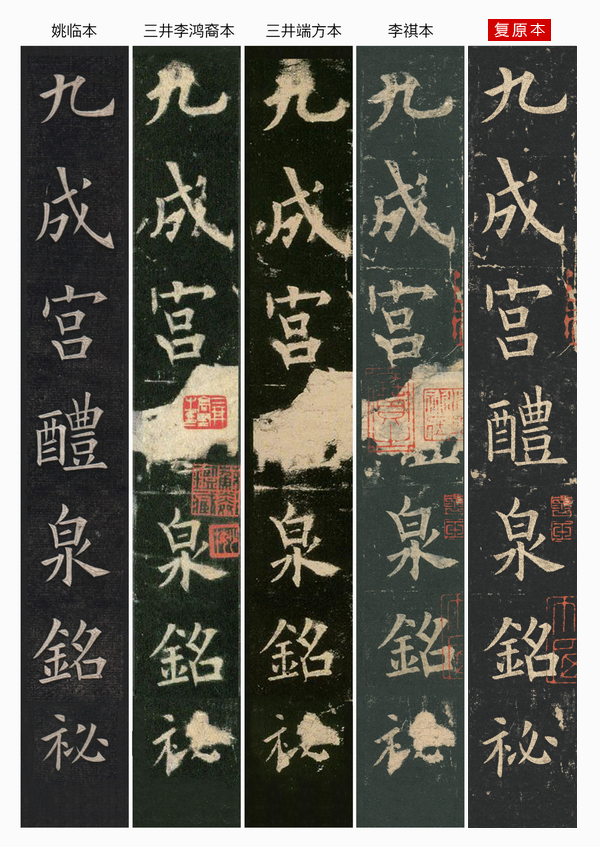 姚临本
三井李鸿裔本
三井端方本
李祺本
复原本
九成宫醴泉銘祕
九成宫泉銘祕
九成宫泉銘祕
九成宫泉銘祕
九成宫醴泉銘祕